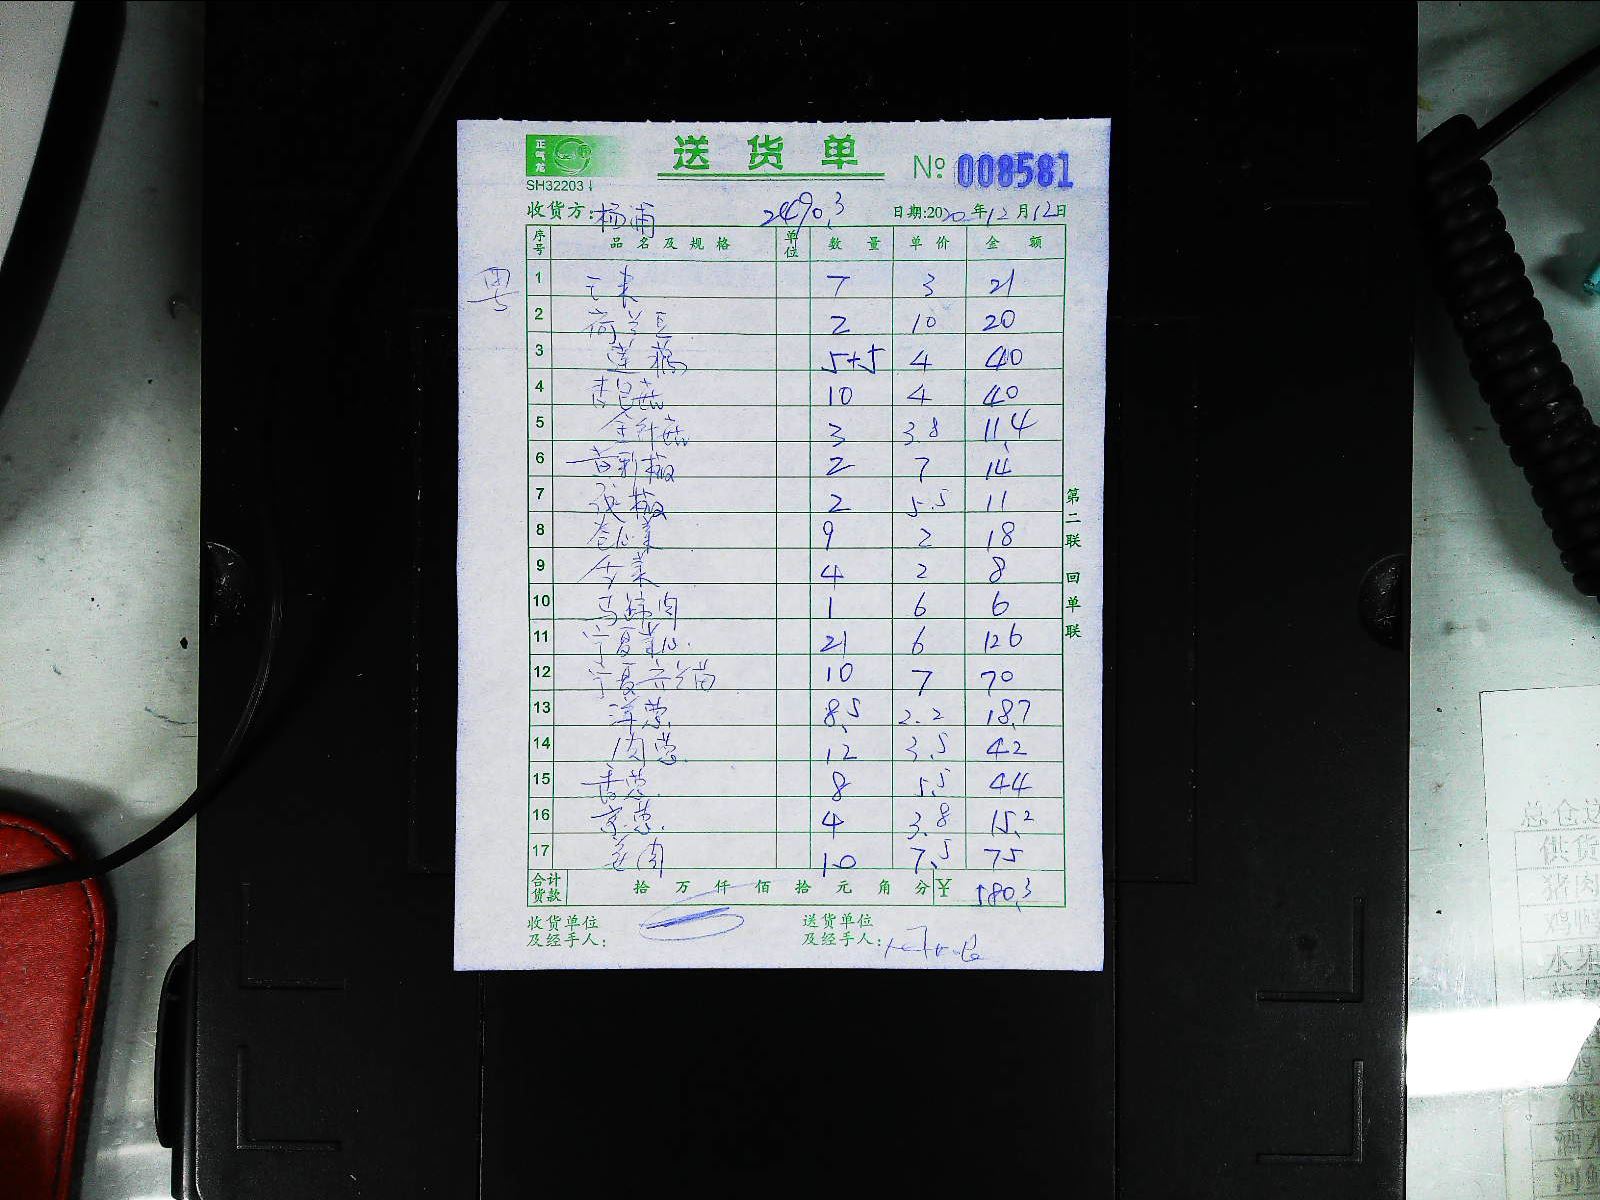 正气龙
送货单
SH32203
№ 008581
收货方: 杨浦 2490.3 日期:2020年12月12日
序号 品名及规格 单位 数量 单价 金额
1 7 3 21
2 荷兰豆 2 10 20
3 莲藕 5+5 4 40
4 杏鲍菇 10 4 40
5 金针菇 3 3.8 11.4
6 黄彩椒 2 7 14
7 2 5.5 11
8 卷心菜 9 2 18
9 4 2 8
10 马蹄肉 1 6 6
11 宁夏菜心 21 6 126
12 宁夏芥兰苗 10 7 70
13 洋葱 8.5 2.2 18.7
14 肉葱 12 3.5 42
15 香葱 8 5.5 44
16 京葱 4 3.8 15.2
17 姜肉 10 7.5 75
合计货款 拾 万 仟 佰 拾 元 角 分 ¥ 580.3
收货单位及经手人:
送货单位及经手人:
第二联 回单联
总仓
供货
猪肉
水果